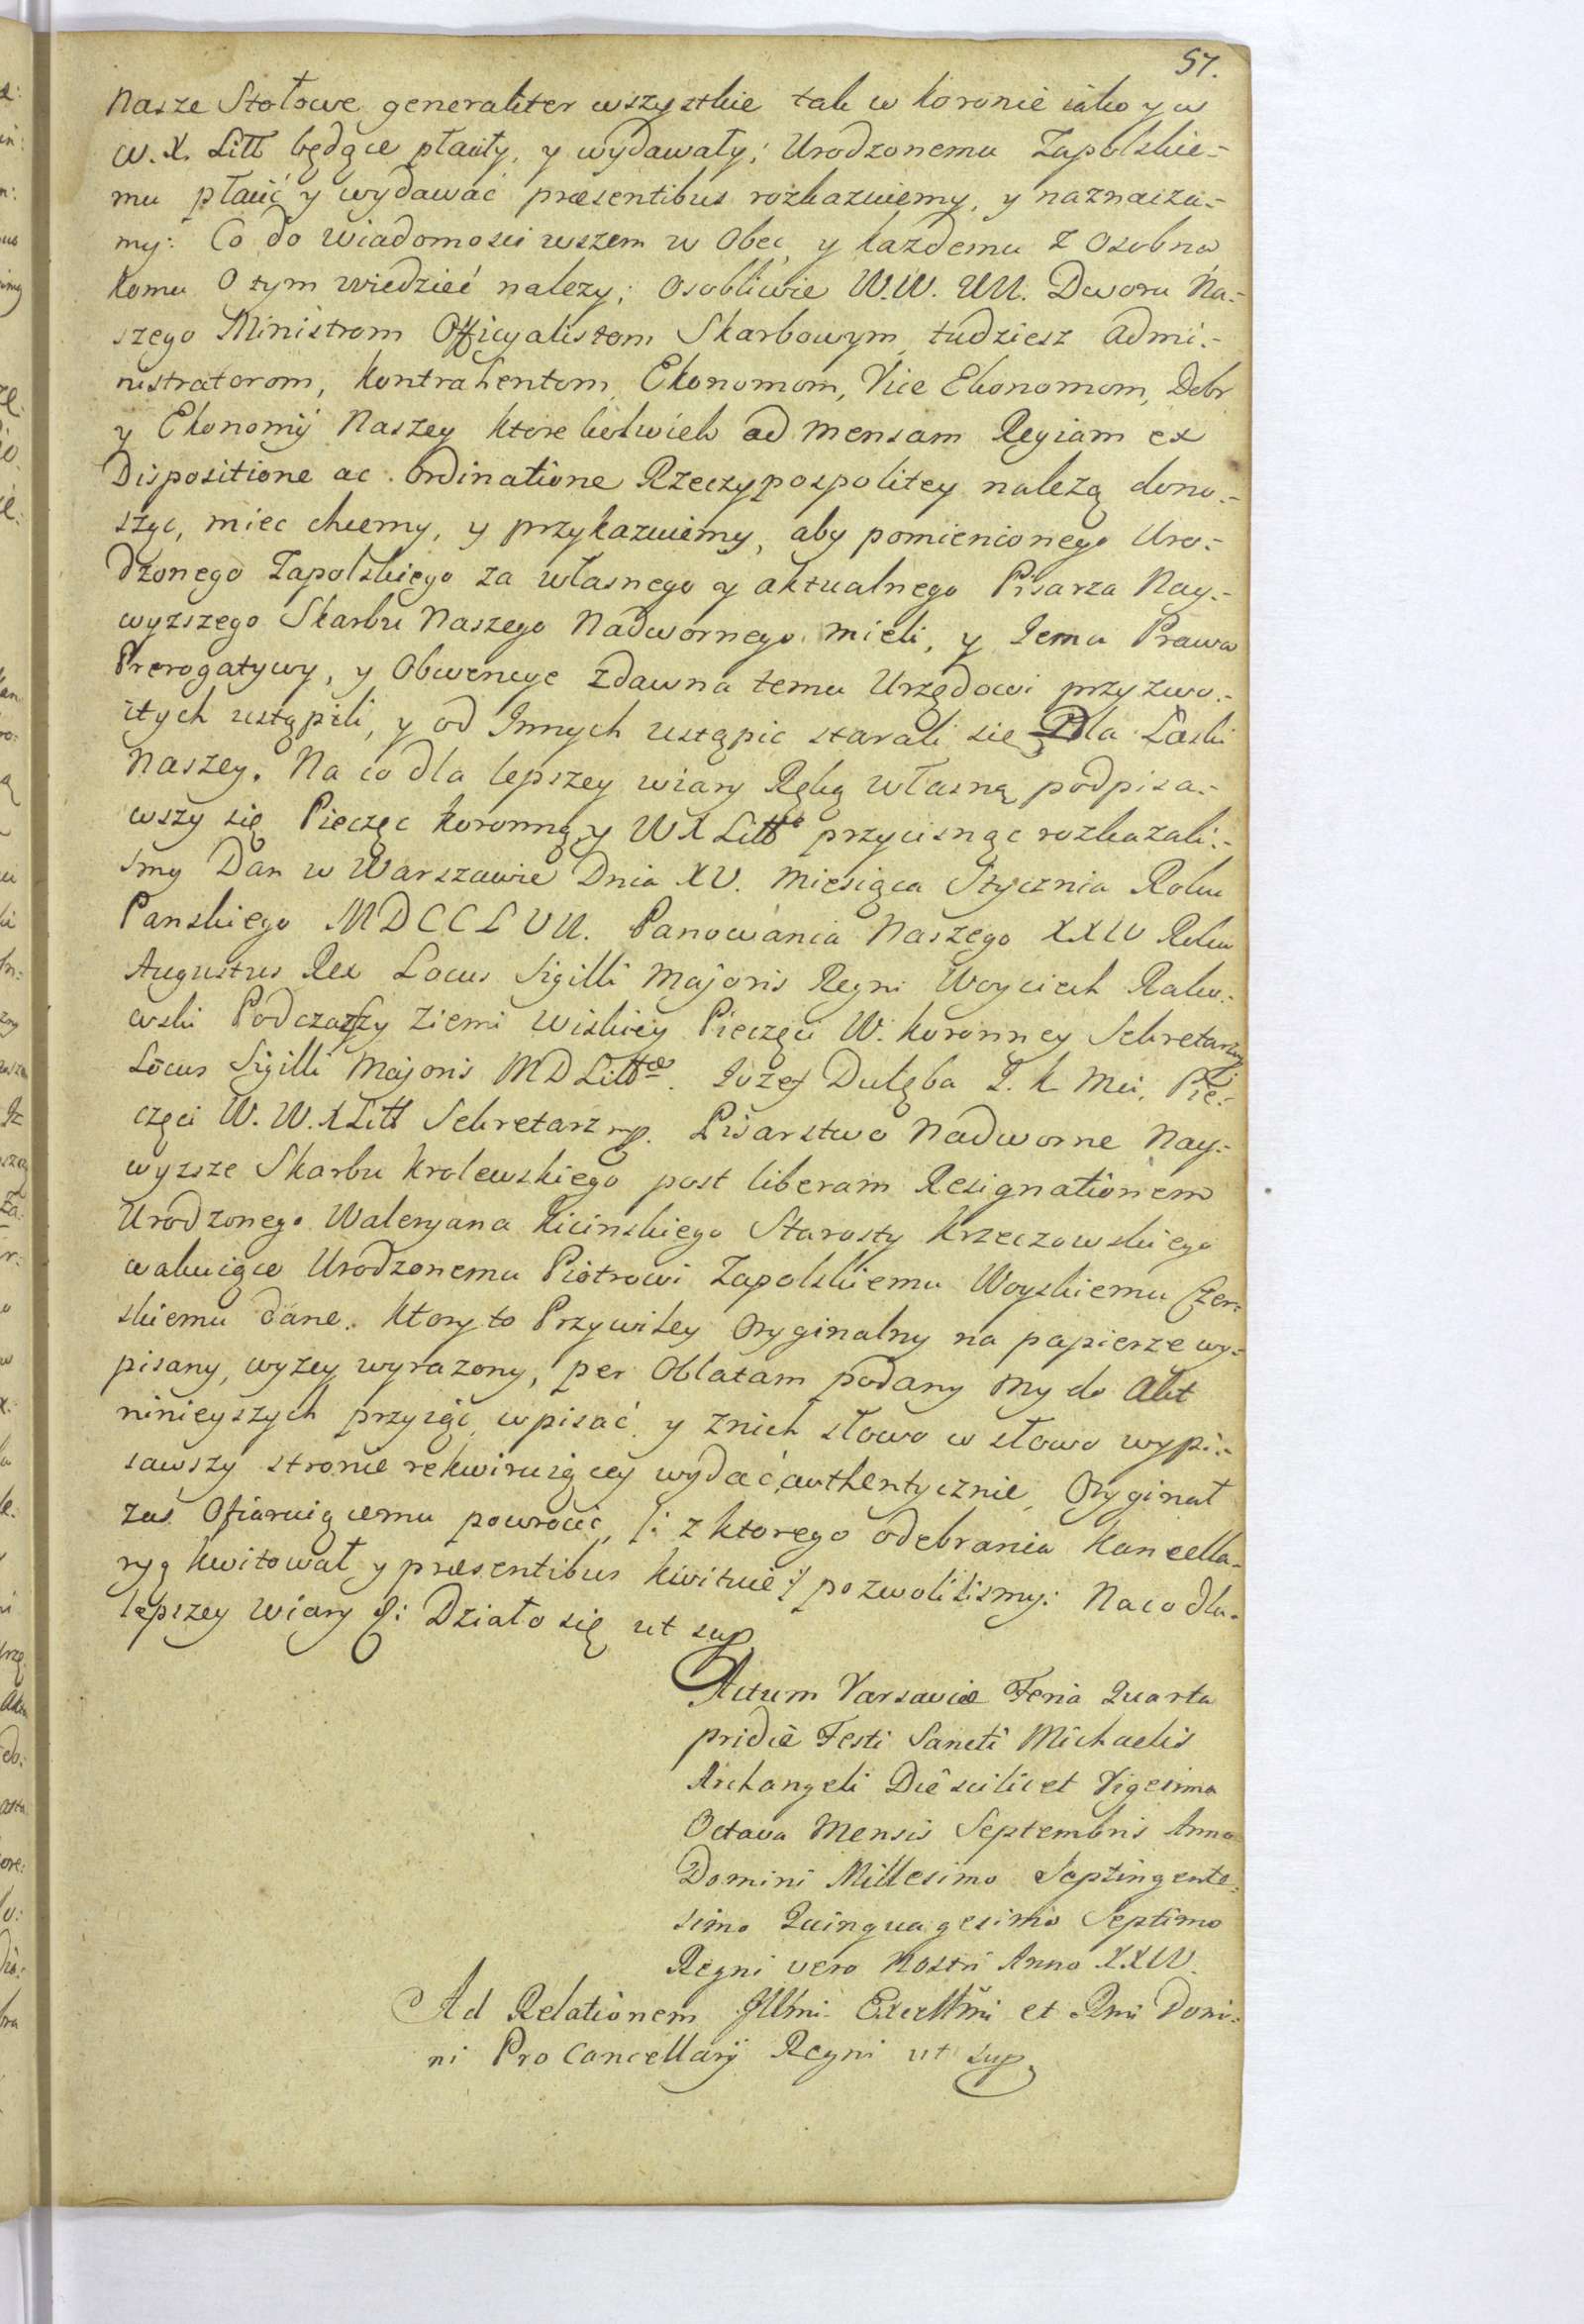 57.
Nasze Stołowe generaliter wszystkie tak w Koronie iako y w
W. X. Litt będące płaciły, y wydawały; Urodzonemu Zapolskie-
mu płacić y wydawać præsentibus rozkazuiemy, y naznacza-
my: Co do wiadomosci wszem w Obec, y każdemu z Osobna
komu O tym wiedzieć nalezy; Osobliwie W.W. UU. Dworu Na-
szego Ministrom Officyalistom Skarbowym, tudziesz Admi-
nistratorom, Kontrahentom, Ekonomom, Vice Ekonomom, Dobr
y Ekonomij Naszey ktore kolwiek ad Mensam Regiam ex
Dispositione ac Ordinatione Rzeczypospolitey należą dono-
sząc, miec chcemy, y przykazuiemy, aby pomienionego Uro-
dzonego Zapolskiego za własnego y aktualnego Pisarza Nay-
wyzszego Skarbu Naszego Nadwornego mieli, y Jemu Prawa
Prerogatywy, y Obwencye zdawna temu Urzędowi przyzwo-
itych ustąpili, y od Innych ustąpic starali się Dla Łaski
Naszey. Na co dla lepszey wiary Ręką własną podpisa-
wszy się Pieczęc Koronną y WXLitt przycisnąc rozkazali-
smy Dan w Warszawie Dnia XV. Miesiąca Stycznia Roku
Panskiego MDCCLVII. Panowania Naszego XXIV Roku
Augustus Rex Locus Sigilli Majoris Regni Woyciech Rako-
wski Podczaszy Ziemi Wiskiey Pieczęci W. Koronney Sekretarz mp
Locus Sigilli Majoris MDLittæ. Jozef Dulęba T. K Mci, Pie-
częci W. W.XLitt Sekretarz mp. Pisarstwo Nadworne Nay-
wyzsze Skarbu Krolewskiego post liberam Resignationem
Urodzonego Waleryana Kicinskiego Starosty Krzeczowskiego
wakuiące Urodzonemu Piotrowi Zapolskiemu Woyskiemu Czer-
skiemu dane. Ktory to Przywiley Oryginalny na papierze wy-
pisany, wyzey wyrazony, per Oblatam podany My do Akt
ninieyszych przyiąc, wpisać y znich słowo w słowo wypi-
sawszy stronie rekwiruiącey wydać authentycznie, Oryginał
zas Ofiaruiącemu powrocic /: z ktorego odebrania Kancella-
ryą kwitował y præsentibus kwituie :/ pozwolilismy: Na co dla
lepszey Wiary &: Działo się ut sup
Actum Varsaviæ Feria Quarta
pridie Festi Sancti Michaelis
Archangeli Die scilicet Vigesima
Octava Mensis Septembris Anno
Domini Millesimo Septingente-
simo Quinquagesimo Septimo
Regni vero Nostri Anno XXIV.
Ad Relationem Illmi Excellmi et Rmi Domi-
ni Pro Cancellarij Regni ut sup